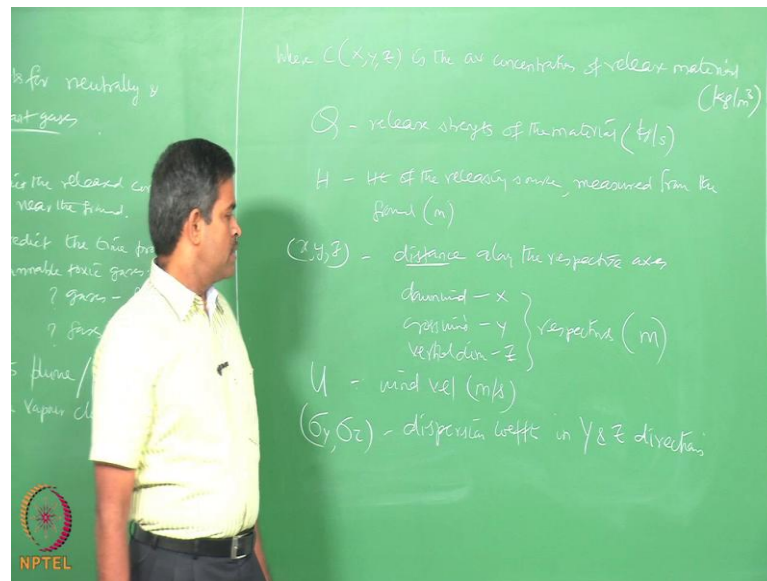 ds for neutrally &
ant gases
is the released
near the ground.
predict the time
flammable toxic gases.
? gases -
? gases
plume /
vapour
Where C(X,Y,Z) is the air concentration of release material
(kg/m³)
Q - release strength of the material (kg/s)
H - Ht of the releasing source, measured from the
ground (m)
(X,Y,Z) - distance along the respective axes
downwind - X
crosswind - Y
respective (m)
Z
U - wind vel (m/s)
(σy, σz) - dispersion coefft in Y & Z directions
NPTEL